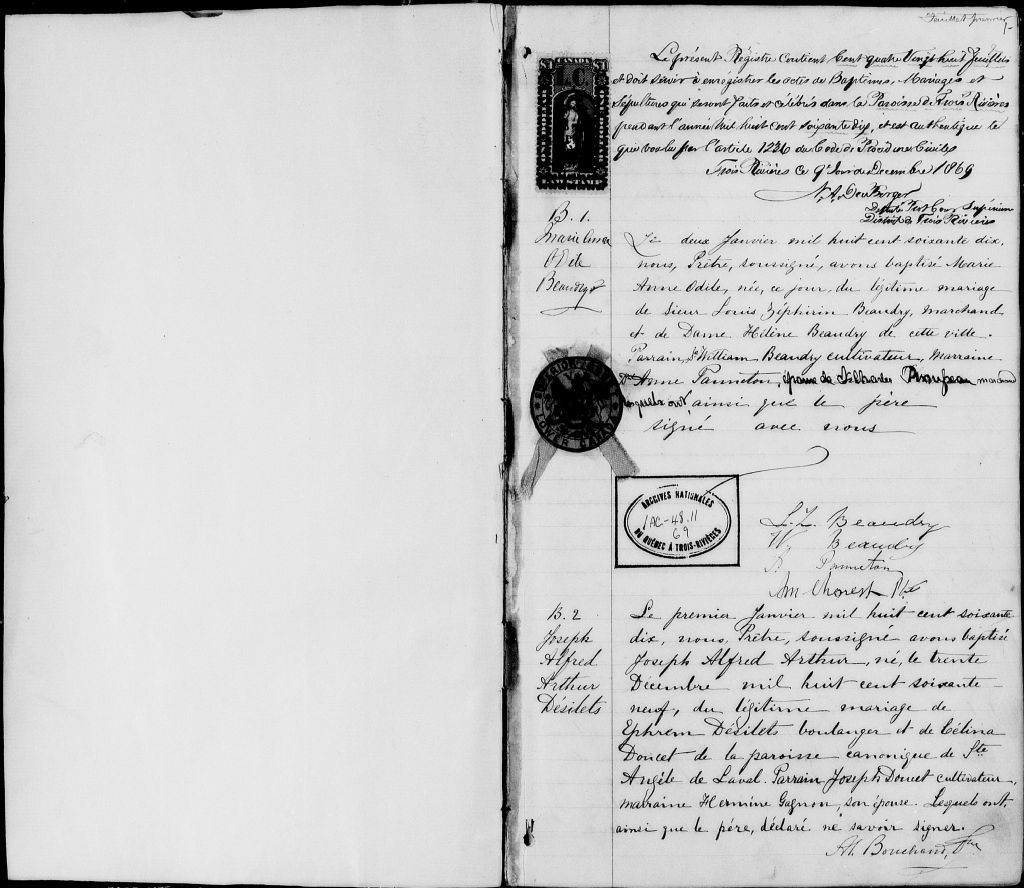 Feuillet premier
Le présent Régistre contient Cent quatre Vingt huit feuillets
et doit servir à enregistrer les actes de Baptêmes, Mariages et
Sépultures qui seront faits et célébrés dans la Paroisse de Trois Rivières
pendant l'année mil huit cent soixante dix, et est authentique tel
que voulu par l'article 1236 du Code de Procédures Civiles
Trois Rivières ce 9e Jour de Decembre 1869
Député Prot Cour Supérieure
District de Trois Rivières
CANADA
$1
ONE DOLLAR
LAW STAMP
B. 1.
Marie Anne
Odile
Beaudry
Le deux Janvier mil huit cent soixante dix,
nous, Prêtre, soussigné, avons baptisé Marie
Anne Odile, née, ce jour, du légitime mariage
de Sieur Louis Zéphirin Beaudry, marchand
et de Dame Hélène Beaudry de cette ville.
Parrain, Sr William Beaudry cultivateur, Marraine
Anne Panneton, épouse de marchand
lesquels ont, ainsi que le père
signé avec nous
LOWER CANADA
ARCHIVES NATIONALES
1AC-48.11
69
DU QUÉBEC À TROIS-RIVIÈRES
L. Z. Beaudry
Wm Beaudry
A Panneton
B. 2
Joseph
Alfred
Arthur
Désilets
Le premier Janvier mil huit cent soixante
dix, nous, Prêtre, soussigné avons baptisé
Joseph Alfred Arthur, né, le trente
Décembre mil huit cent soixante
neuf, du légitime mariage de
Ephrem Désilets boulanger et de Célina
Doucet de la paroisse canonique de Ste
Angèle de Laval. Parrain Joseph Doucet cultivateur,
marraine Hermine Gagnon, son épouse. Lesquels ont,
ainsi que le père, déclaré ne savoir signer.